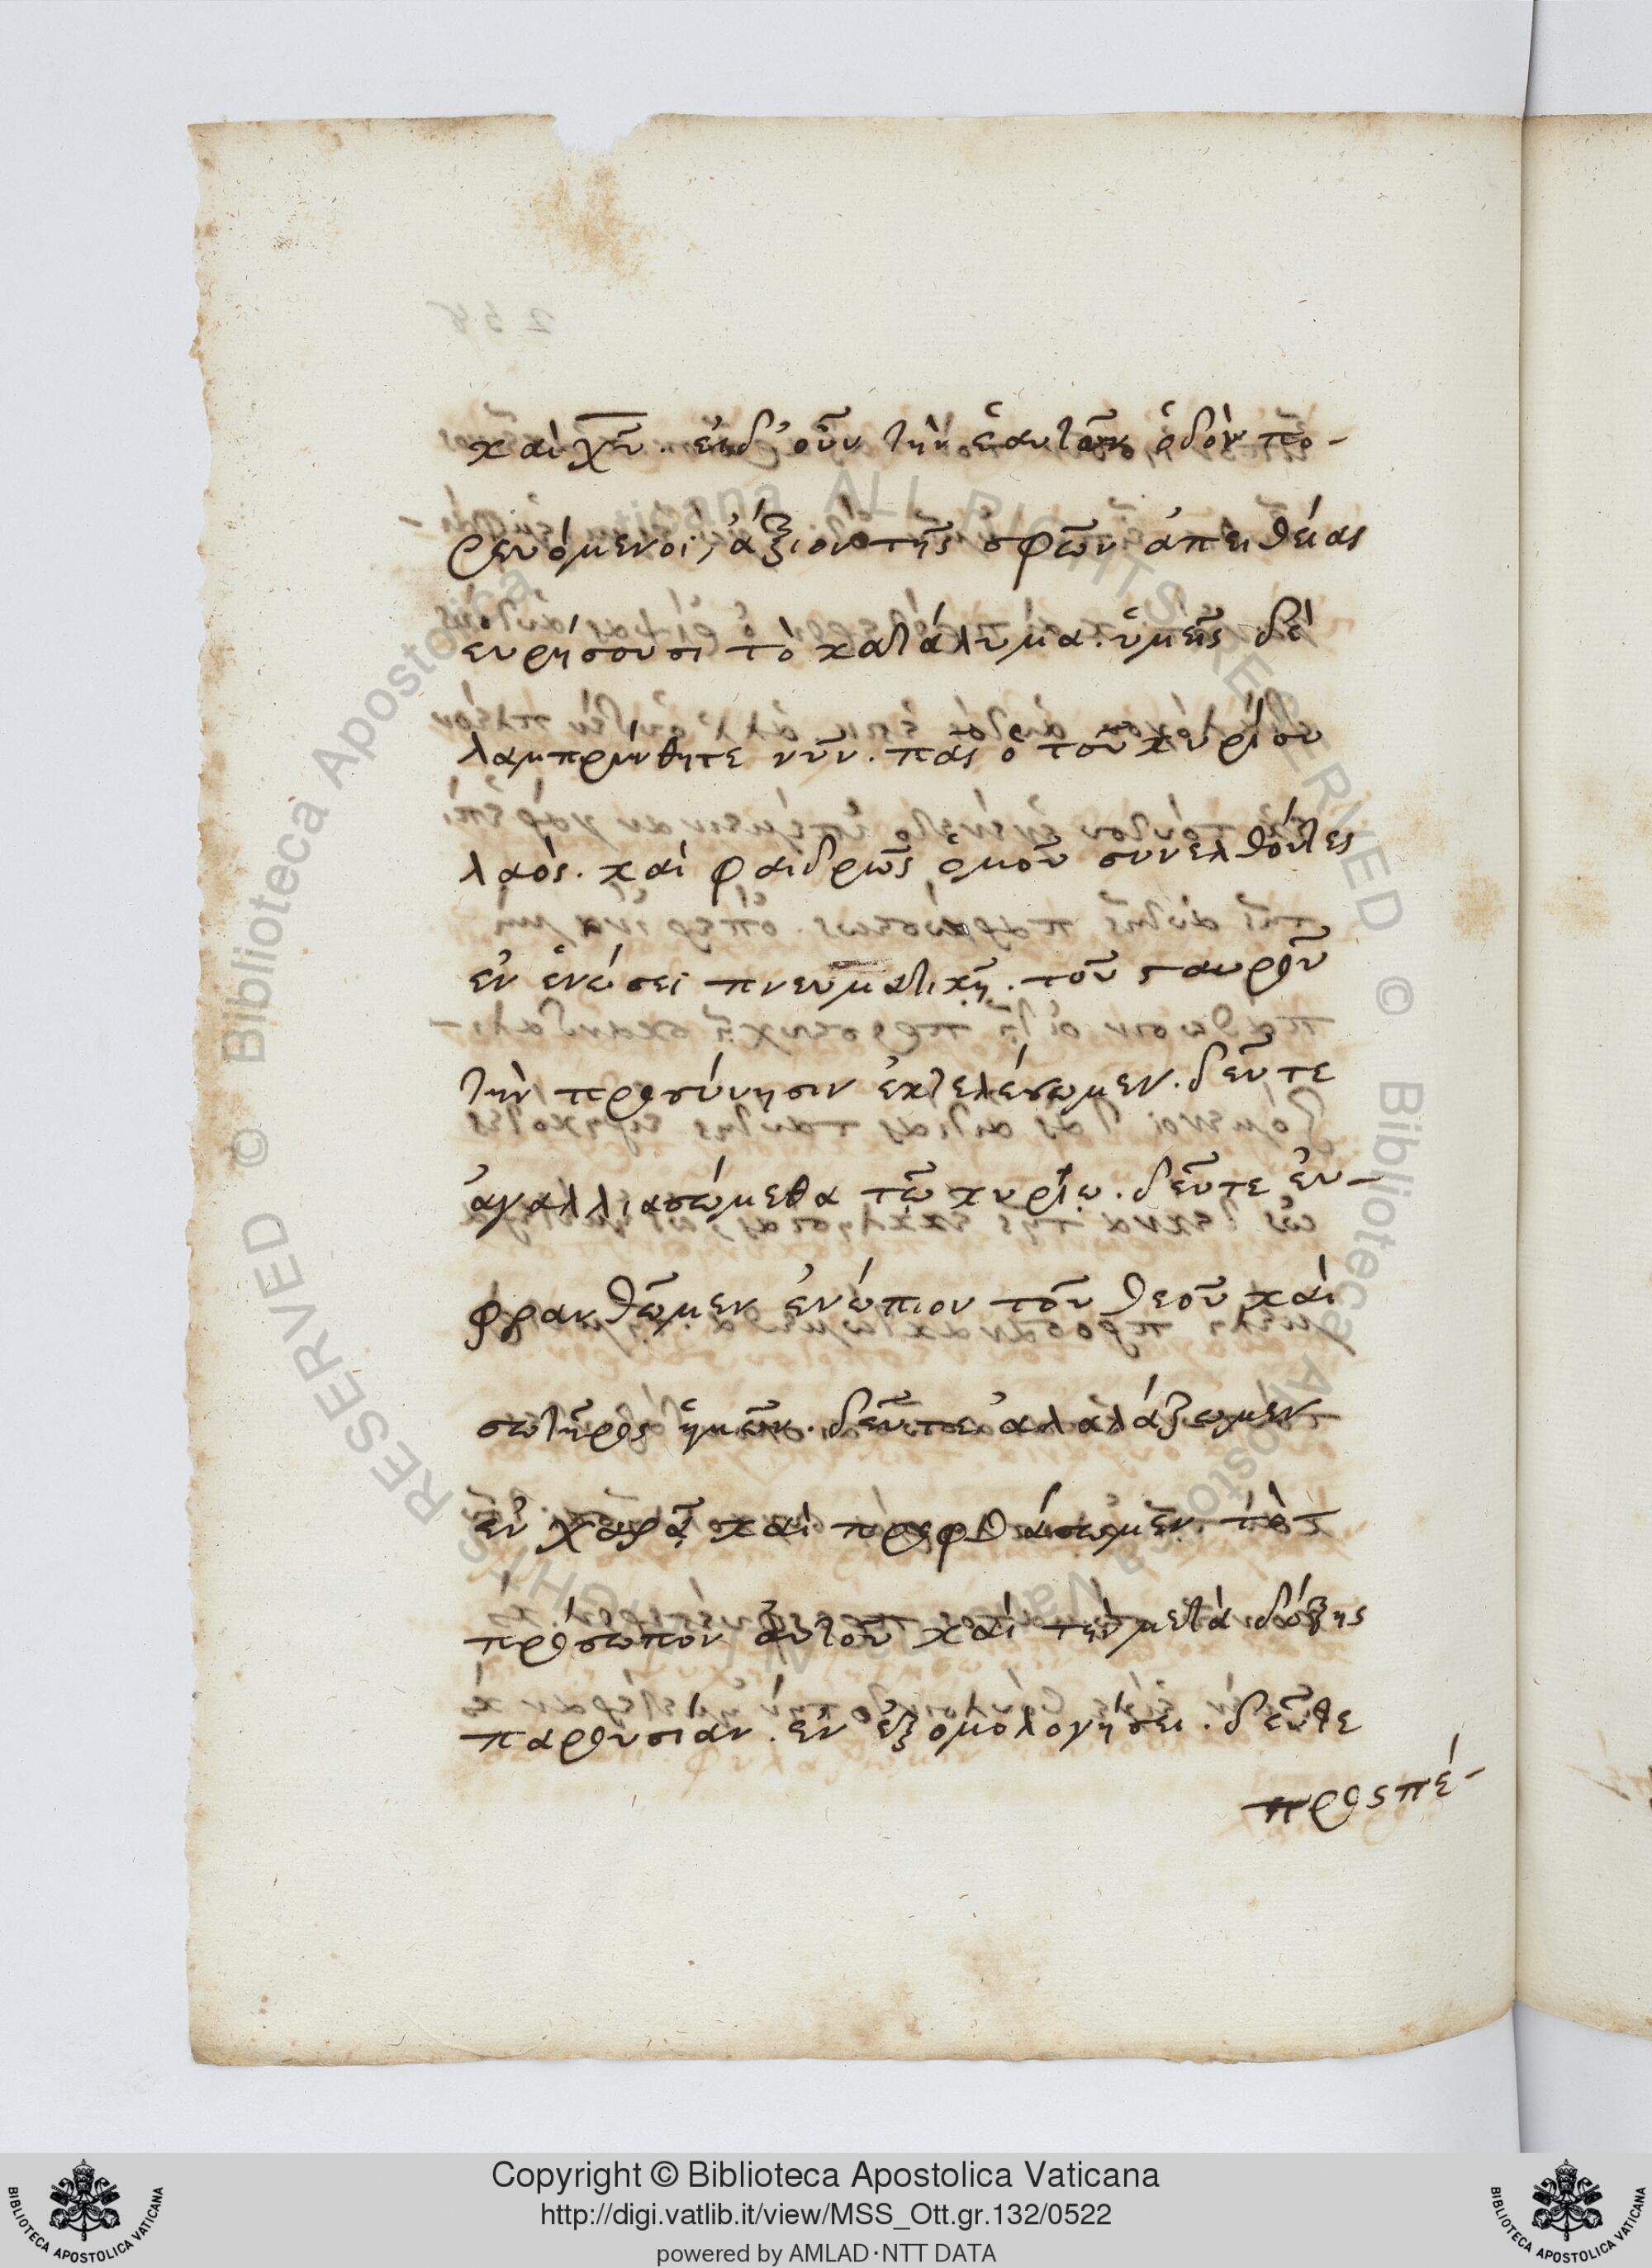 καὶ χῦ. εἰδ' οὖν τὴν ἑαυτῶν ὁδὸν πο-
ρευόμενοι, ἄξιον τῆς σφῶν ἀπειθείας
ευρήσουσι τὸ κατάλυμα. ὑμεῖς δὲ
λαμπρύνθητε νῦν. πᾶς ὁ τοῦ κυρίου
λαός. καὶ φαιδρῶς ὁμοῦ συνελθόντες
ἐν ἑνώσει πνευματικῇ. τοῦ σταυροῦ
τὴν προσκύνησιν ἐκτελέσωμεν. δεῦτε
ἀγαλλιασώμεθα τῷ κυρίῳ. δεῦτε ἐυ-
φρανθῶμεν ἐνώπιον τοῦ θεοῦ καὶ
σωτῆρος ἡμῶν. δεῦτε ἀλαλάξωμεν
ἐν χαρᾷ καὶ προφθάσωμεν τὸ
πρόσωπον ἀυτοῦ καὶ τὴν μετὰ δόξης
παρουσίαν. ἐν ἐξομολογήσει. δεῦτε
προσπέ-
Copyright © Biblioteca Apostolica Vaticana
http://digi.vatlib.it/view/MSS_Ott.gr.132/0522
powered by AMLAD·NTT DATA
BIBLIOTECA APOSTOLICA VATICANA
BIBLIOTECA APOSTOLICA VATICANA